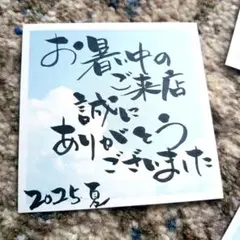 お暑い中の
ご来店
誠に
ありがとう
ございました
2025 夏